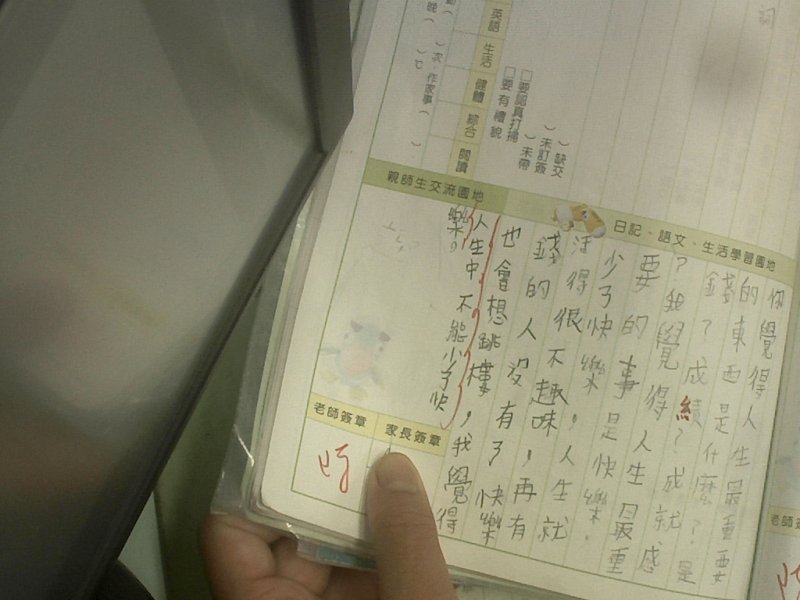 詞
日記、語文、生活學習園地
你覺得人生最重要
的東西是什麼？是
錢？成績？成就感
？我覺得人生最重
要的事是快樂。
少了快樂，人生就
活得很不趣味，再有
錢的人沒有了快樂
也會想跳樓，我覺得
人生中不能少了快
樂。
親師生交流園地
老師簽章
家長簽章
英語
生活
健體
綜合
閱讀
□要認真打掃
□要有禮貌
）缺交
）未訂簽
）未帶
）次，作家事（
）
晚（
老師簽